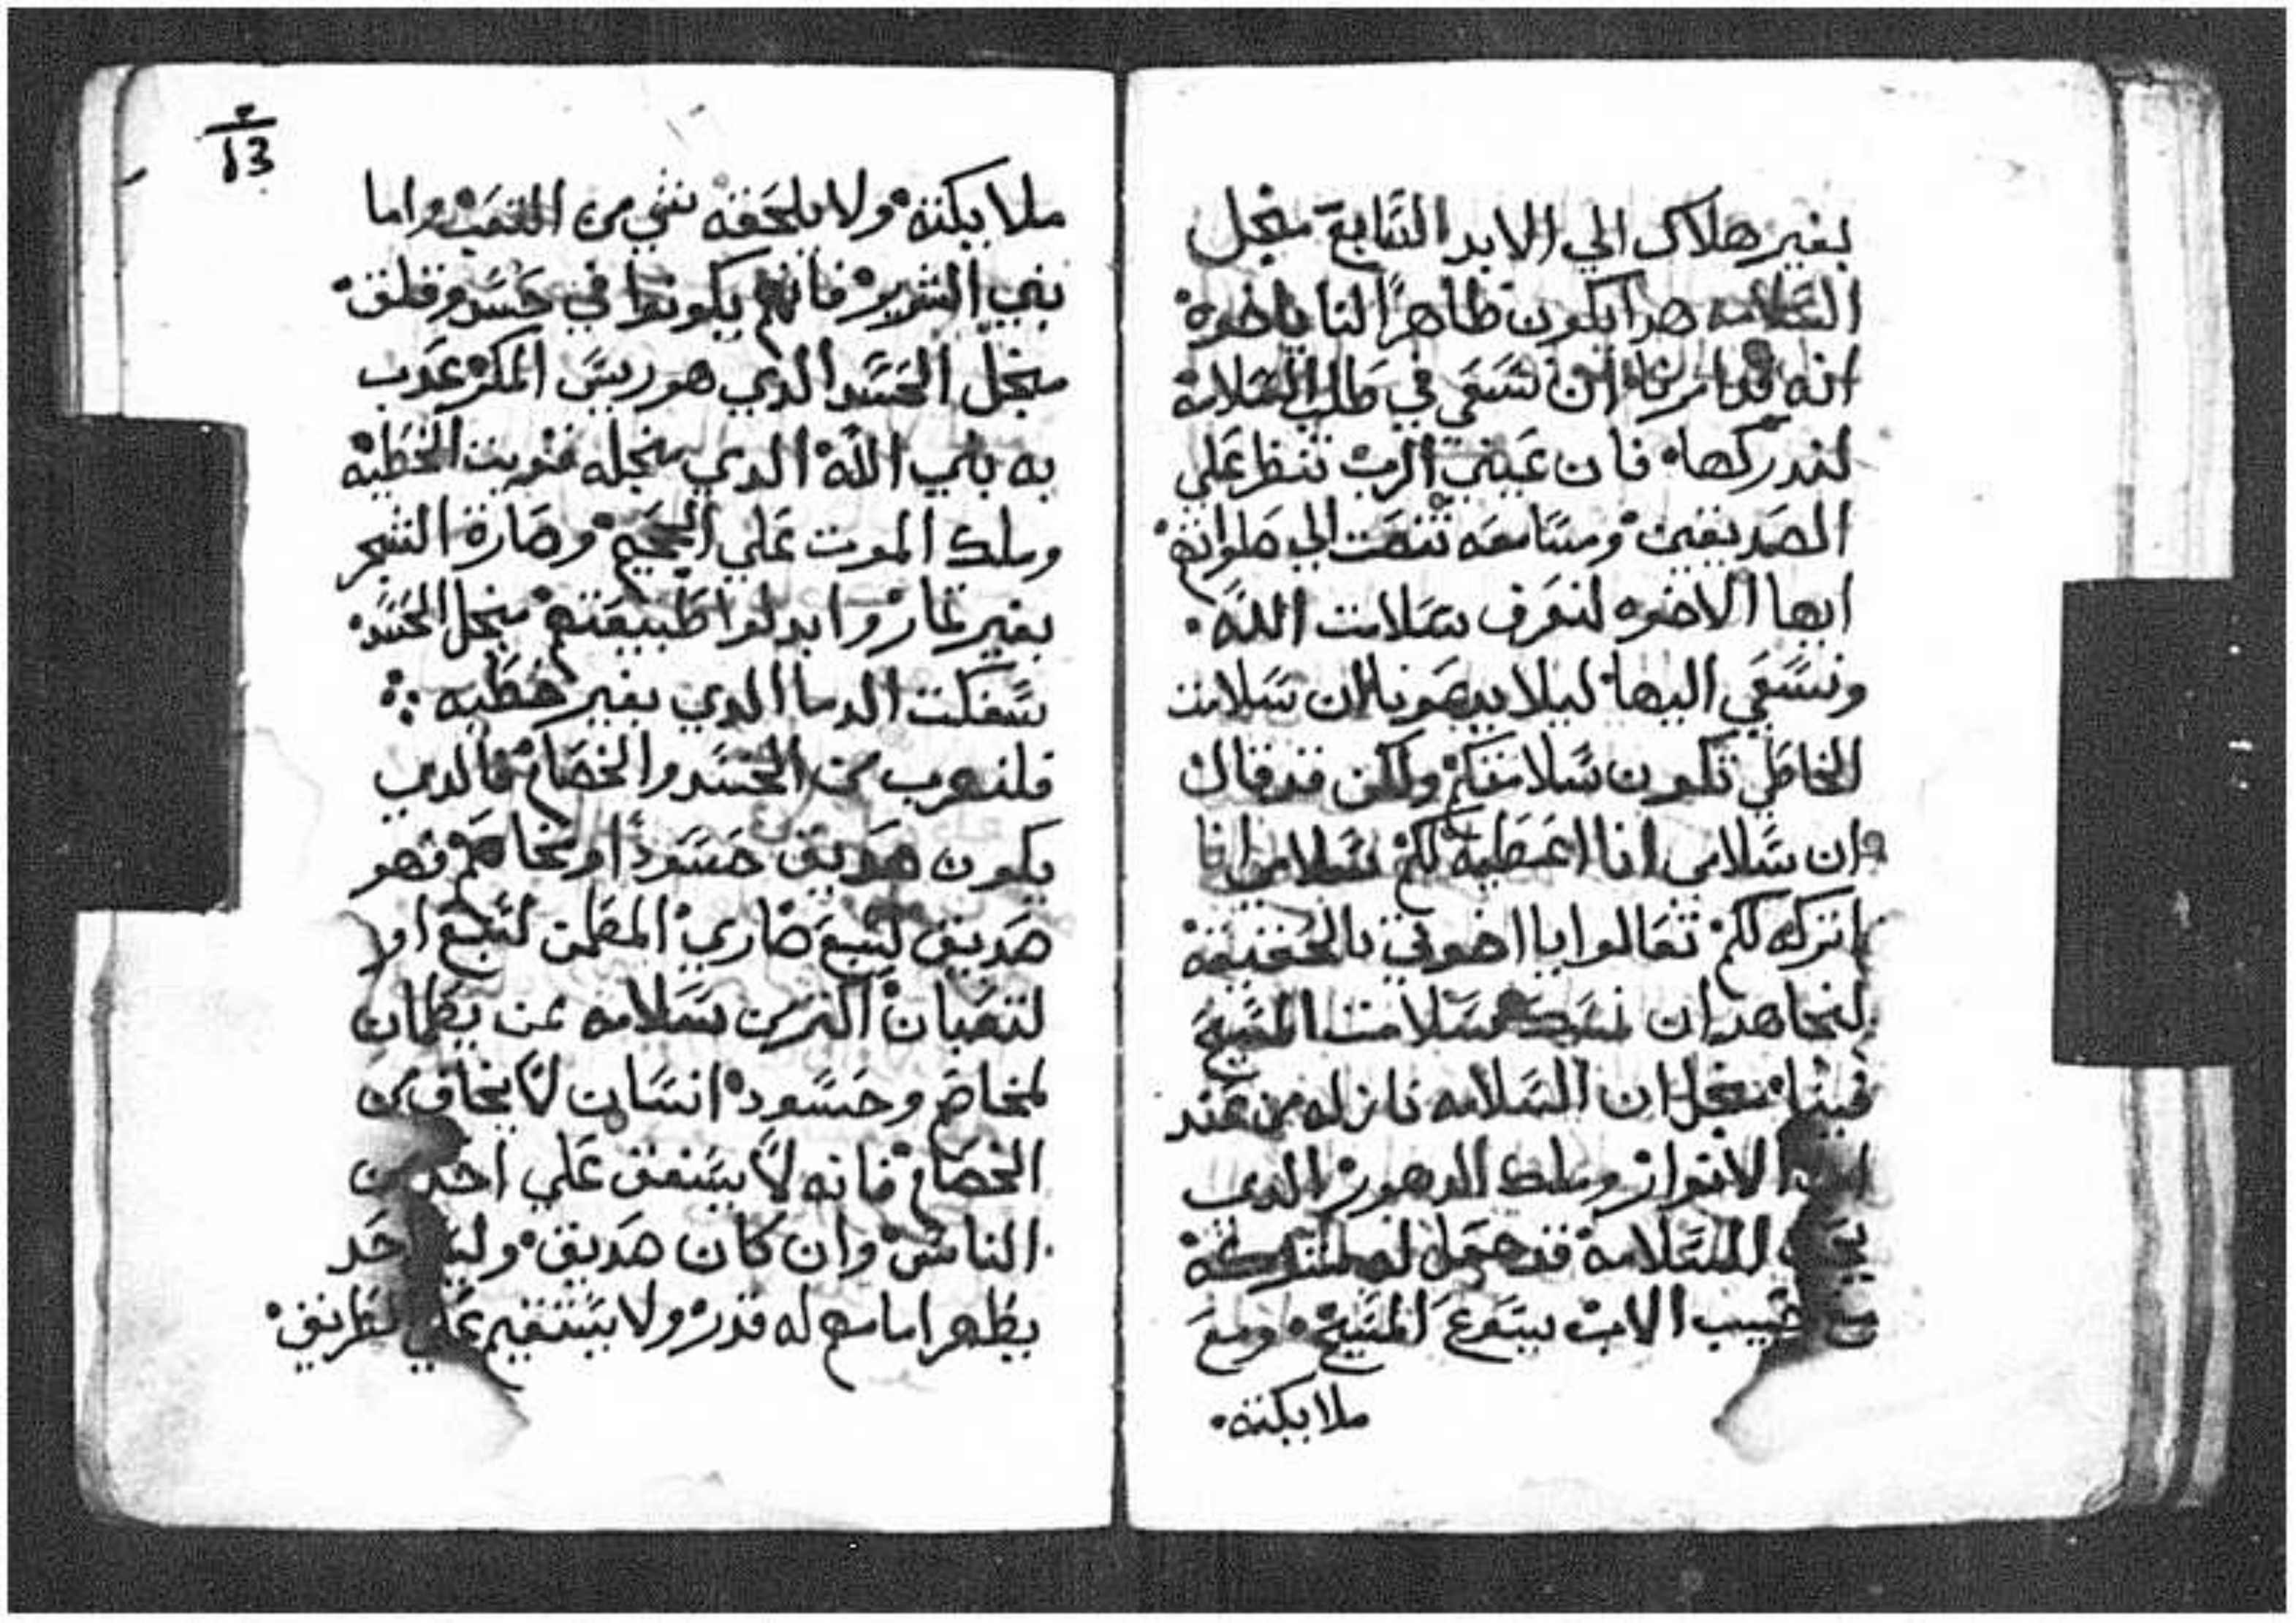 بغير هلاك الي الابد السابع منجل
السلامه هدا يكون ظاهرًا لنا ياخوه
انه قد امرنا ان نسعي في طلب السلامه
لندركها فان عيني الرب تنظر علي
الصديقين ومسامعه تنصت الي صلواتهم
ايها الاخوه لنعرف سلامت الله
ونسعي اليها ليلا يدعونا ان سلامت
الخاطي تكون سلامتكم ولكن قد قال
ان سلامي انا اعطيه لكم سلامي انا
اتركه لكم تعالوا يا اخوتي بالحقيقه
لنجاهد ان نمسك سلامت المسيح
فينا منجل ان السلامه نازله من عند
الانوار وملك الدهور الدي
للسلامه قد جعل له
حبيب الاب يسوع المسيح ومع
ملايكته
13
ملايكته ولا يلحقه شي من التعب واما
بني الشرير فانهم يكونوا في حسد وقلق
منجل الحسد الدي هو ريس المكر عدب
به بني الله الدي منجله قويت الخطيه
وملك الموت علي الجميع وصارة الشجر
بغير تمار وابدلوا طبيعتهم منجل الحسد
سفكت الدما الدي بغير خطيه
فلنهرب من الحسد والخصام فالدي
يكون صديق حسود او مخاصم فهو
صديق لسبع ضاري المطمن لسبع او
لتعبان اكتر من سلامه عن يطمان
لمخاصم وحسود انسان لا يخاف من
الخصام فانه لا يشفق علي احد من
الناس وان كان صديق
يظهر اما مع له قدر ولا يستقيم علي طريق